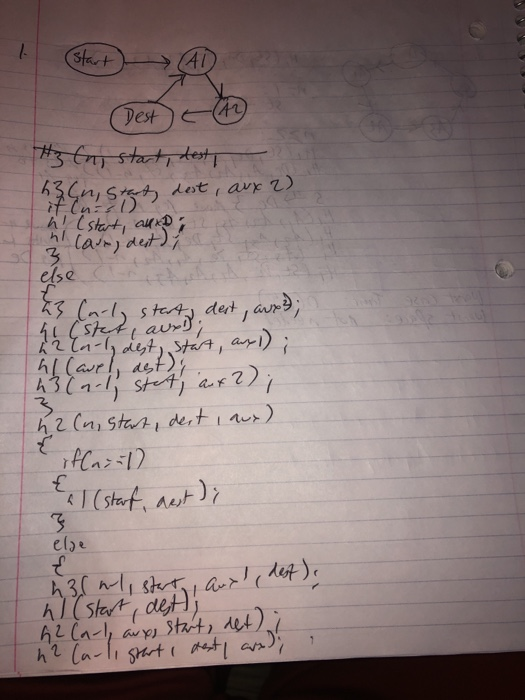 1.
Start A1
Dest A2
H3 (n, start, dest,
h3(n, start, dest, aux 2)
if (n==1)
h1 (start, aux1);
h1 (aux, dest);
}
else
{
h3 (n-1, start, dest, aux2);
h1 (start, aux1);
h2 (n-1, dest, start, aux1);
h1 (aux1, dest);
h3 (n-1, start, aux 2);
}
h2 (n, start, dest, aux)
{
if(n==1)
{
h1 (start, dest);
}
else
{
h3( n-1, start, aux1, dest);
h1 (start, dest);
h2 (n-1, aux, start, dest);
h2 (n-1, start, dest, aux);